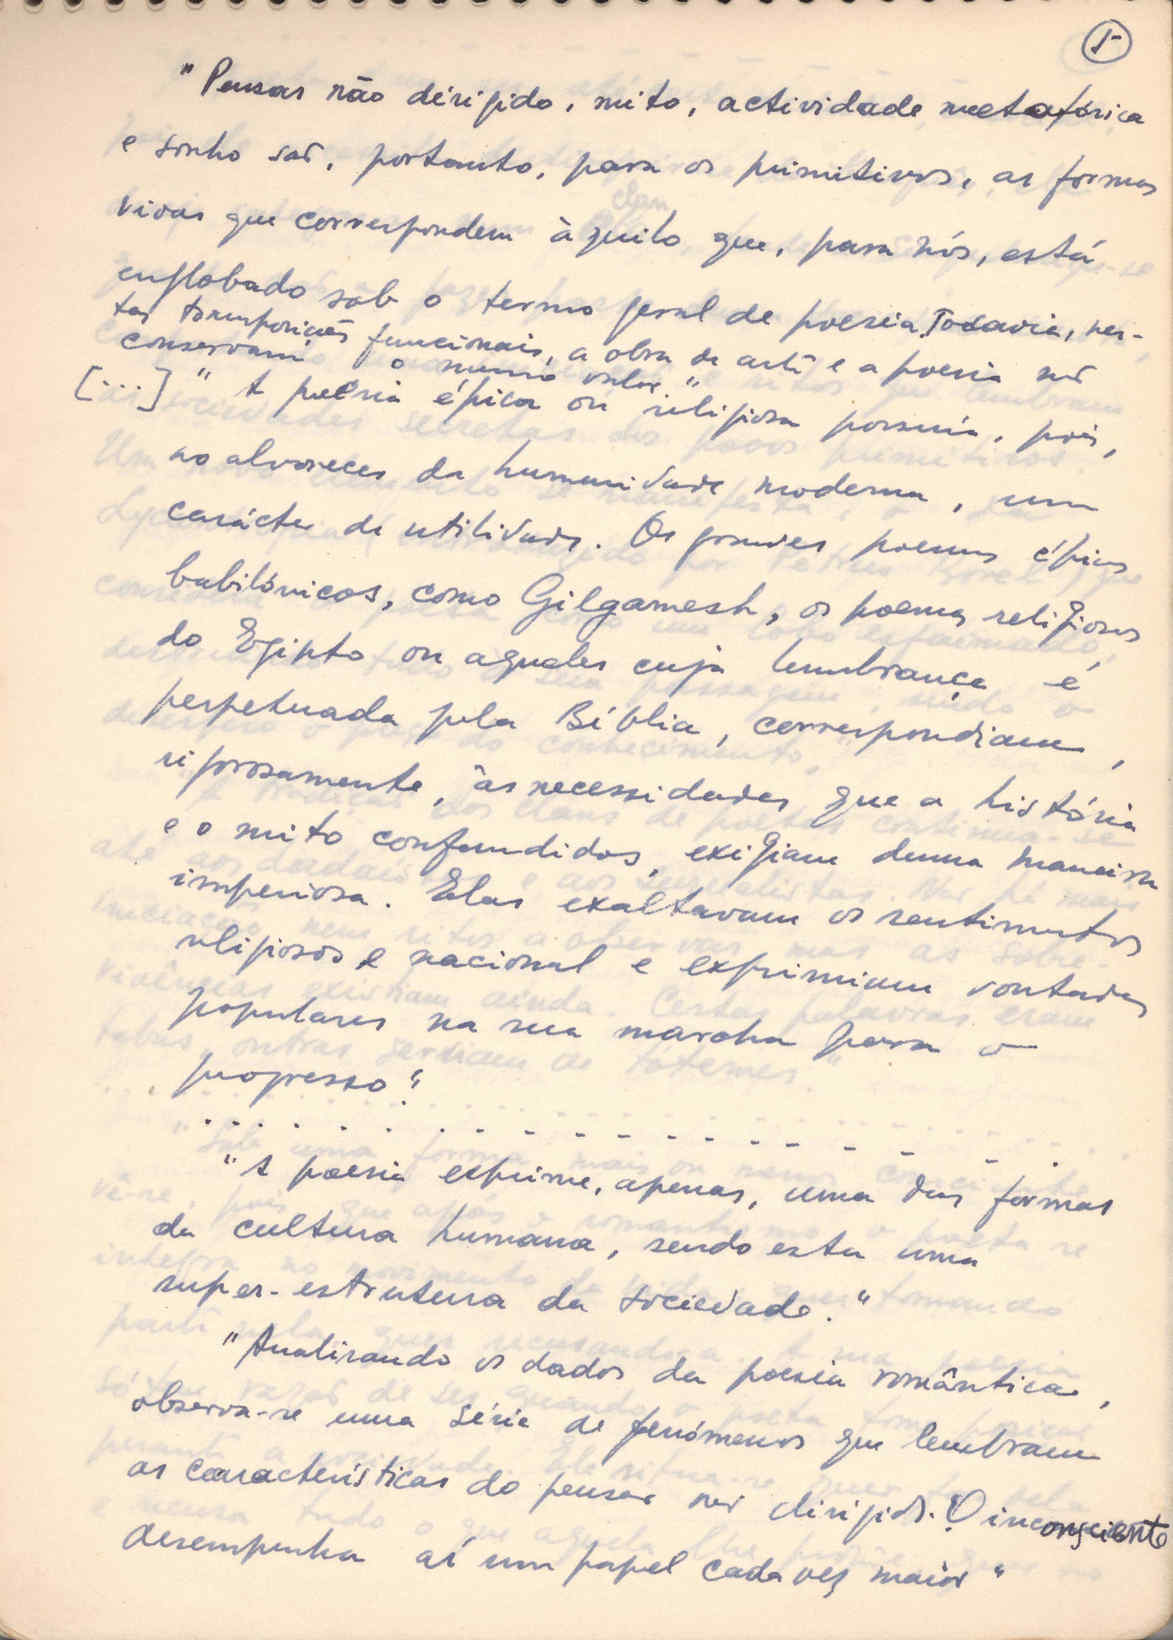 5
"Pensar não dirigido, mito, actividade metafórica
e sonho são, portanto, para os primitivos, as formas
vivas que correspondem àquilo que, para nós, está
englobado sob o termo geral de poesia. Todavia, nes-
tas transposições funcionais, a obra de arte e a poesia não
conservam o mesmo valor."
[...] "A poesia épica ou religiosa possuía, pois,
ao alvorecer da humanidade moderna, um
carácter de utilidade. Os grandes poemas épicos
babilónicos, como Gilgamesh, os poemas religiosos
do Egipto ou aqueles cuja lembrança é
perpetuada pela Bíblia, correspondiam,
rigorosamente, às necessidades que a história
e o mito confundidos, exigiam duma maneira
imperiosa. Elas exaltavam os sentimentos
religiosos e nacional e exprimiam vontades
populares na sua marcha para o
progresso."
. . . . . . . . . . . . . . . . . .
"A poesia exprime, apenas, uma das formas
da cultura humana, sendo esta uma
super-estrutura da sociedade."
"Analisando os dados da poesia romântica,
observa-se uma série de fenómenos que lembram
as características do pensar não dirigido. O inconsciente
desempenha aí um papel cada vez maior"